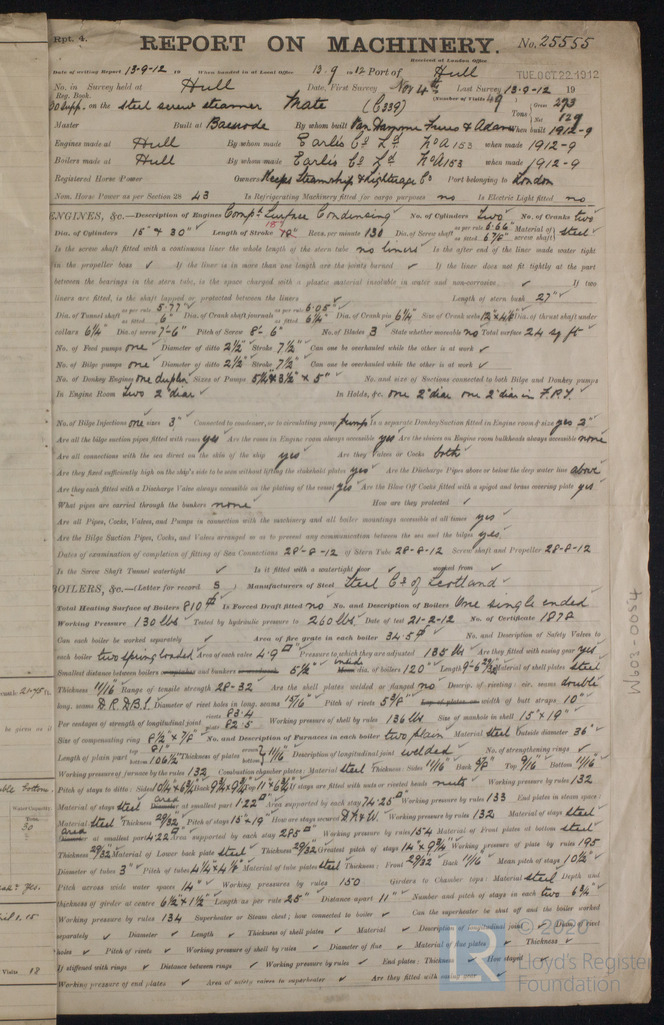 Rpt. 4.
REPORT ON MACHINERY. No. 25555
Received at London Office
TUE. OCT. 22 1912
Date of writing Report 13-9-12 19 When handed in at Local Office 13·9 1912 Port of Hull
No. in Survey held at Hull Date, First Survey Nov 4th Last Survey 13-9-12 19
Reg. Book. (Number of Visits 49
on the steel screw steamer (C339) Tons Gross 293
Net 129
Master Built at By whom built When built 1912-9
Engines made at Hull By whom made Earle's Co Ld No A 153 when made 1912-9
Boilers made at Hull By whom made Earle's Co Ld No A 153 when made 1912-9
Registered Horse Power Owners Steamship & Lighterage Co Port belonging to London
Nom. Horse Power as per Section 28 43 Is Refrigerating Machinery fitted for cargo purposes no Is Electric Light fitted no
ENGINES, &c.—Description of Engines Compd Surface Condensing No. of Cylinders Two No. of Cranks two
Dia. of Cylinders 15" & 30" Length of Stroke Revs. per minute 130 Dia. of Screw shaft as per rule 6.66" Material of screw shaft steel
as fitted 6 7/8"
Is the screw shaft fitted with a continuous liner the whole length of the stern tube no liners Is the after end of the liner made water tight
in the propeller boss ✓ If the liner is in more than one length are the joints burned ✓ If the liner does not fit tightly at the part
between the bearings in the stern tube, is the space charged with a plastic material insoluble in water and non-corrosive ✓ If two
liners are fitted, is the shaft lapped or protected between the liners Length of stern bush 27"
Dia. of Tunnel shaft as per rule 5.77" as fitted 6" Dia. of Crank shaft journals as per rule 6.05" as fitted 6 1/4" Dia. of Crank pin 6 1/4" Size of Crank webs Dia. of thrust shaft under
collars 6 1/4" Dia. of screw 7'-6" Pitch of Screw 8'-6" No. of Blades 3 State whether moveable no Total surface 24 sq ft
No. of Feed pumps one Diameter of ditto 2 1/2" Stroke 7 1/2" Can one be overhauled while the other is at work ✓
No. of Bilge pumps one Diameter of ditto 2 1/2" Stroke 7 1/2" Can one be overhauled while the other is at work ✓
No. of Donkey Engines one duplex Sizes of Pumps 5 1/4" & 3 1/2" × 5" No. and size of Suctions connected to both Bilge and Donkey pumps
In Engine Room Two 2" dia In Holds, &c. one 2" dia one 2" dia in F.P.T.
No. of Bilge Injections one sizes 3" Connected to condenser, or to circulating pump pump Is a separate Donkey Suction fitted in Engine room & size yes 2"
Are all the bilge suction pipes fitted with roses yes Are the roses in Engine room always accessible yes Are the sluices on Engine room bulkheads always accessible none
Are all connections with the sea direct on the skin of the ship yes Are they Valves or Cocks both
Are they fixed sufficiently high on the ship's side to be seen without lifting the stokehold plates yes Are the Discharge Pipes above or below the deep water line above
Are they each fitted with a Discharge Valve always accessible on the plating of the vessel yes Are the Blow Off Cocks fitted with a spigot and brass covering plate yes
What pipes are carried through the bunkers none How are they protected ✓
Are all Pipes, Cocks, Valves, and Pumps in connection with the machinery and all boiler mountings accessible at all times yes
Are the Bilge Suction Pipes, Cocks, and Valves arranged so as to prevent any communication between the sea and the bilges yes
Dates of examination of completion of fitting of Sea Connections 28-8-12 of Stern Tube 28-8-12 Screw shaft and Propeller 28-8-12
Is the Screw Shaft Tunnel watertight ✓ Is it fitted with a watertight door ✓ worked from ✓
BOILERS, &c.—(Letter for record S) Manufacturers of Steel Steel Co of Scotland
Total Heating Surface of Boilers 810 Is Forced Draft fitted no No. and Description of Boilers One single ended
Working Pressure 130 lbs Tested by hydraulic pressure to 260 lbs Date of test 21-2-12 No. of Certificate 1878
Can each boiler be worked separately ✓ Area of fire grate in each boiler 34.5 No. and Description of Safety Valves to
each boiler two spring loaded Area of each valve 4.9 Pressure to which they are adjusted 135 lbs Are they fitted with easing gear yes
Smallest distance between boilers and bunkers 5 1/2" inside dia. of boilers 120" Length Material of shell plates steel
Thickness 11/16 Range of tensile strength 28-32 Are the shell plates welded or flanged no Descrip. of riveting: cir. seams double
long. seams D.R.D.B.S. Diameter of rivet holes in long. seams 15/16" Pitch of rivets 5 3/8" width of butt straps 10"
Per centages of strength of longitudinal joint rivets 83.4 plate 82.5 Working pressure of shell by rules 136 lbs Size of manhole in shell 15" × 19"
Size of compensating ring 8 1/2" × 7/8" No. and Description of Furnaces in each boiler two plain Material steel Outside diameter 36"
Length of plain part top 81" bottom 106 1/2" Thickness of plates crown bottom 11/16 Description of longitudinal joint welded No. of strengthening rings ✓
Working pressure of furnace by the rules 132 Combustion chamber plates: Material steel Thickness: Sides 11/16 Back Top 9/16 Bottom 11/16
Pitch of stays to ditto: Sides Back Top If stays are fitted with nuts or riveted heads nuts Working pressure by rules 132
Material of stays steel area at smallest part 1.22 Area supported by each stay 74.25 Working pressure by rules 133 End plates in steam space:
Material steel Thickness 29/32 Pitch of stays 15" × 19" How are stays secured Working pressure by rules 132 Material of stays steel
area at smallest part 4.22 Area supported by each stay 285 Working pressure by rules 154 Material of Front plates at bottom steel
Thickness 29/32 Material of Lower back plate steel Thickness 29/32 Greatest pitch of stays 14" × 9 3/4" Working pressure of plate by rules 195
Diameter of tubes 3" Pitch of tubes 4 1/4" × 4 1/8" Material of tube plates steel Thickness: Front 29/32 Back 11/16 Mean pitch of stays 10 1/2"
Pitch across wide water spaces 14" Working pressures by rules 150 Girders to Chamber tops: Material steel Depth and
thickness of girder at centre 6 1/2" × 1 1/2" Length as per rule 25" Distance apart 11" Number and pitch of stays in each two 6 3/4"
Working pressure by rules 134 Superheater or Steam chest; how connected to boiler ✓ Can the superheater be shut off and the boiler worked
separately ✓ Diameter ✓ Length ✓ Thickness of shell plates ✓ Material ✓ Description of longitudinal joint ✓ Diam. of rivet
holes ✓ Pitch of rivets ✓ Working pressure of shell by rules ✓ Diameter of flue ✓ Material of flue plates ✓ Thickness ✓
If stiffened with rings ✓ Distance between rings ✓ Working pressure by rules ✓ End plates: Thickness ✓ How stayed ✓
Working pressure of end plates ✓ Area of safety valves to superheater ✓ Are they fitted with easing gear ✓
W602-0054
© 2020
Lloyd's Register
Foundation